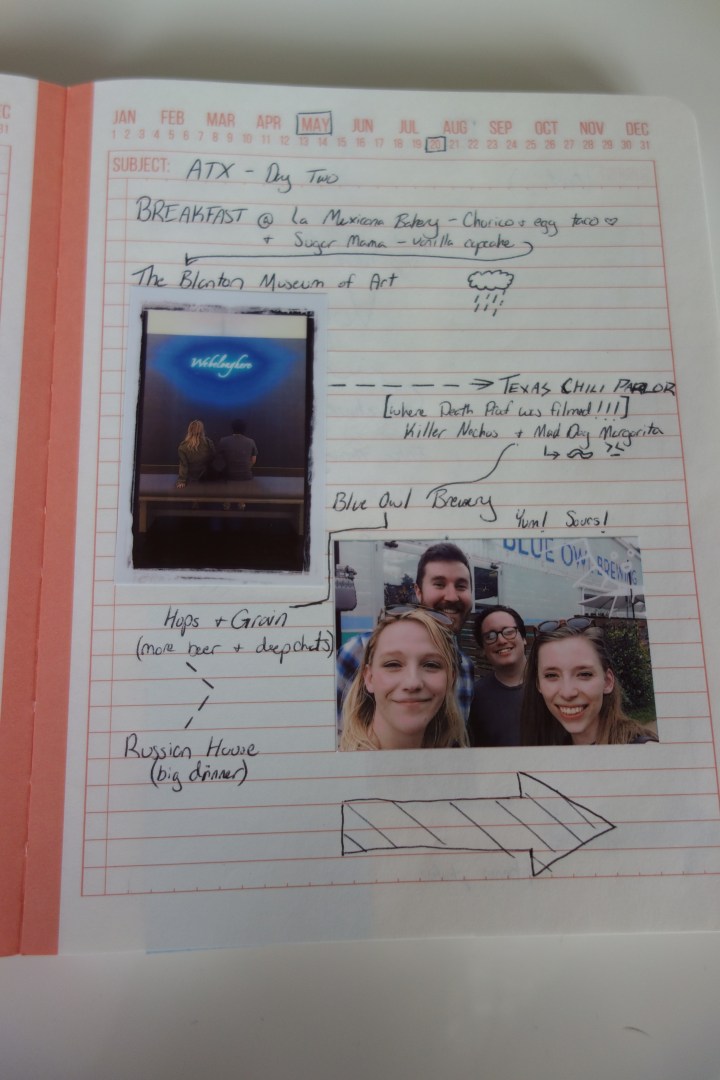 JAN FEB MAR APR MAY JUN JUL AUG SEP OCT NOV DEC
1 2 3 4 5 6 7 8 9 10 11 12 13 14 15 16 17 18 19 20 21 22 23 24 25 26 27 28 29 30 31
SUBJECT: ATX - Day Two
BREAKFAST @ La Mexicana Bakery - Churico + egg taco ♡
+ Sugar Mama - vanilla cupcake
The Blanton Museum of Art
We belong here
TEXAS CHILI PARLOR
[where Death Proof was filmed!!!]
Killer Nachos + Mad Dog Margarita
Blue Owl Brewery
Yum! Sours!
BLUE OWL BREWING
Hops + Grain
(more beer + deep chats)
Russian House
(big dinner)